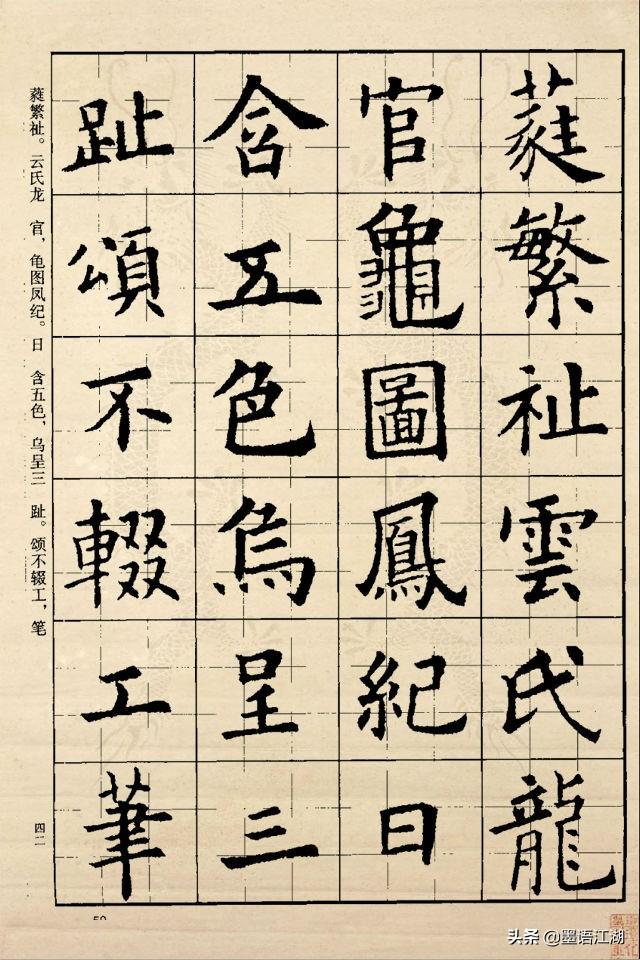 蕤繁祉雲氏龍
官龜圖鳳紀日
含五色烏呈三
趾頌不輟工筆
蕤繁祉。云氏龙 官，龟图凤纪。日 含五色，乌呈三 趾。颂不辍工，笔
四二
50
头条 @墨语江湖